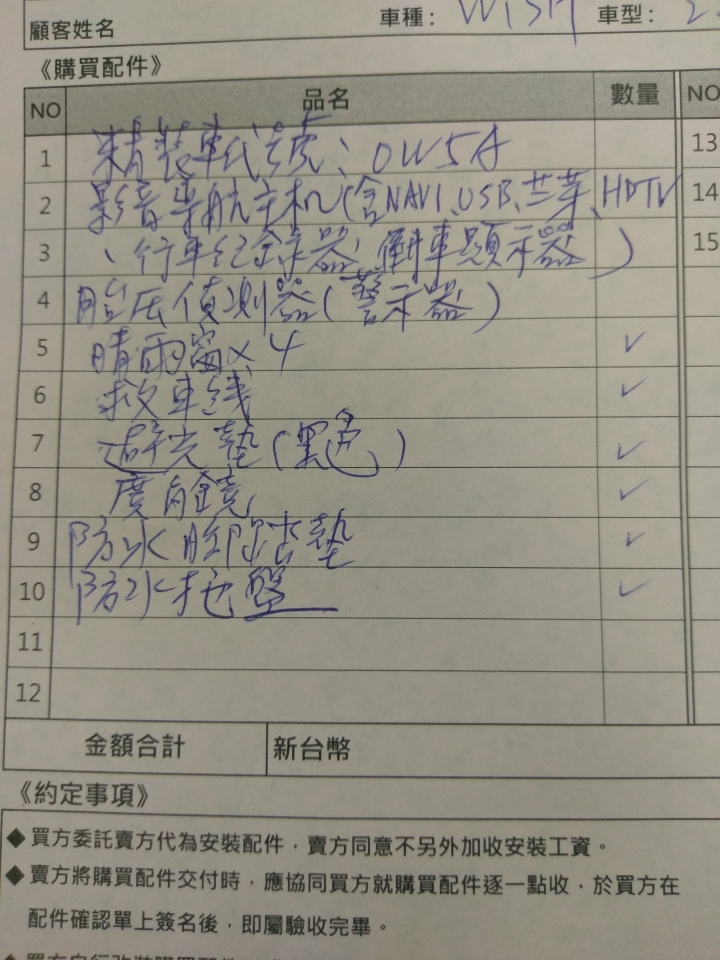 顧客姓名 車種： WISH 車型： 2.
《購買配件》
NO 品名 數量 NO
1 精裝車代號：OW5A 13
2 影音導航主机(含NAVI、USB、芒芽、HDTV 14
3 、行車纪录器，倒車顯示器) 15
4 胎压偵測器(警示器)
5 晴雨窗x4 ✓
6 救車线 ✓
7 避光墊(黑色) ✓
8 廣角鏡 ✓
9 防水腳踏墊 ✓
10 防水托盤 ✓
11
12
金額合計 新台幣
《約定事項》
◆買方委託賣方代為安裝配件，賣方同意不另外加收安裝工資。
◆賣方將購買配件交付時，應協同買方就購買配件逐一點收，於買方在
配件確認單上簽名後，即屬驗收完畢。